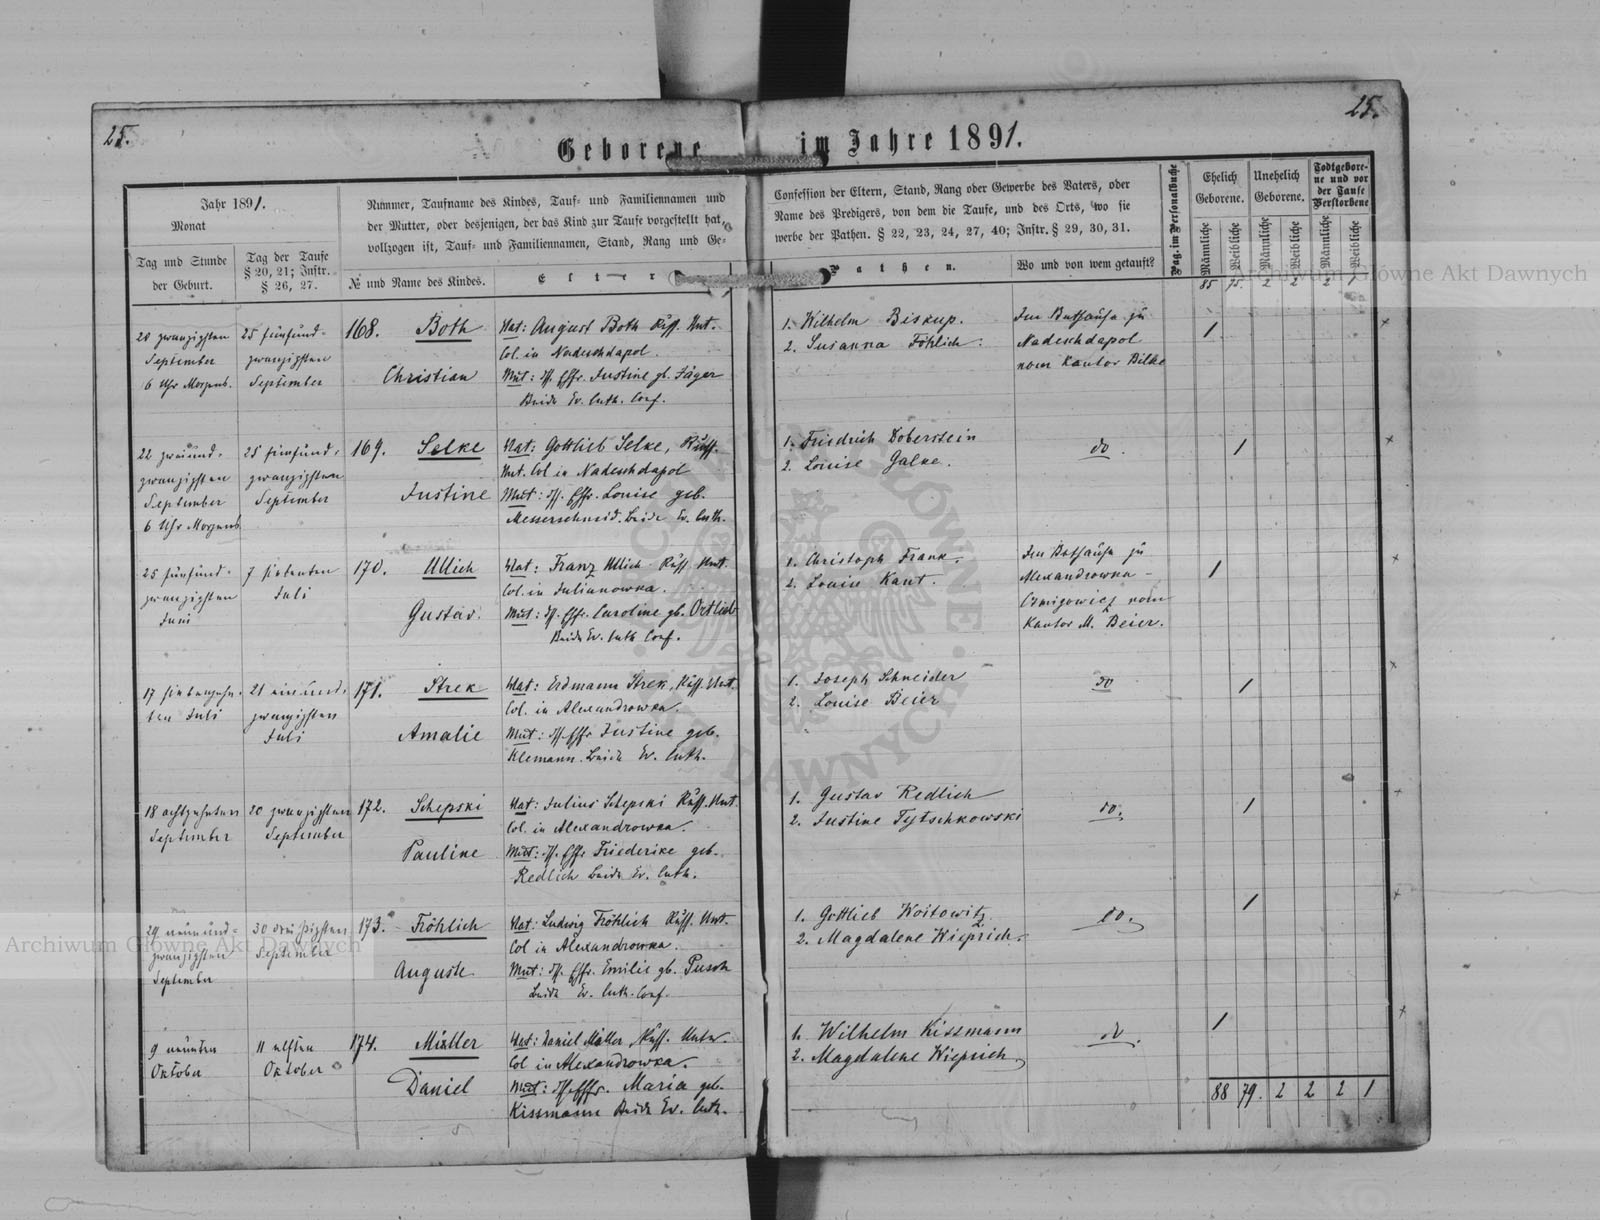 25.
25.
Geborene im Jahre 1891.
Jahr 1891.
Monat
Tag und Stunde
der Geburt.
Tag der Taufe
§ 20, 21; Instr.
§ 26, 27.
Nummer, Taufname des Kindes, Tauf- und Familiennamen und
der Mutter, oder desjenigen, der das Kind zur Taufe vorgestellt hat,
vollzogen ist, Tauf- und Familiennamen, Stand, Rang und Ge-
№ und Name des Kindes.
Elter
Confession der Eltern, Stand, Rang oder Gewerbe des Vaters, oder
Name des Predigers, von dem die Taufe, und des Orts, wo sie
werbe der Pathen. § 22, 23, 24, 27, 40; Instr. § 29, 30, 31.
Pathen.
Wo und von wem getauft?
Pag. im Personalbuche
Ehelich
Geborene.
Unehelich
Geborene.
Todtgebore-
ne und vor
der Taufe
Verstorbene
Männliche
Weibliche
Männliche
Weibliche
Männliche
Weibliche
85 75. 2 2 2 1
20 zwanzigsten
September
6 Uhr Morgens.
25 fünfund-
zwanzigsten
September
168. Both
Christian
Vat: August Both Russ. Unt.
Col. in Nadeschdapol.
Mut: Justine gb. Jäger
Beide Ev. Luth. Conf.
1. Wilhelm Biskup.
2. Susanna Föhlich.
Im Bethause zu
Nadeschdapol
vom Kantor Bilke
1
22 zweiund-
zwanzigsten
September
6 Uhr Morgens
25 fünfund-
zwanzigsten
September
169. Selke
Justine
Vat: Gottlieb Selke, Russ.
Unt. Col in Nadeschdapol
Mut: Louise geb.
Messerschmid. Beide Ev. Luth.
1. Friedrich Doberstein
2. Louise Galke.
do.
1
25 fünfund-
zwanzigsten
Juni
7 siebenten
Juli
170. Ullich
Gustav.
Vat: Franz Ullich Russ Unt.
Col. in Julianowka.
Mut: Caroline gb. Ortlieb
Beide Ev. Luth Conf.
1. Christoph Frank.
2. Louise Kant.
Im Bethause zu
Alexandrowka-
vom
Kantor M. Beier.
1
17 siebenzehn-
ten Juli
21 einund-
zwanzigsten
Juli
171. Strek
Amalie
Vat: Erdmann Strek, Russ. Unt.
Col. in Alexandrowka.
Mut: Justine geb.
Klemann. Beide Ev. Luth.
1. Joseph Schneider
2. Louise Beier
do
1
18 achtzehnten
September
20 zwanzigsten
September
172. Schepski
Pauline
Vat: Julius Schepski Russ. Unt.
Col. in Alexandrowka.
Mut: Friederike geb.
Redlich Beide Ev. Luth.
1. Gustav Redlich
2. Justine Tytschkowski
do.
1
29 neunund-
zwanzigsten
September
30 dreißigsten
September
173. Fröhlich
Auguste
Vat: Ludwig Fröhlich Russ. Unt.
Col in Alexandrowka.
Mut: Emilie gb. Pusch
Beide Ev. Luth. Conf.
1. Gottlieb Woitowitz
2. Magdalene Wieprich.
do.
1
9 neunten
Oktober
11 elften
Oktober
174. Müller
Daniel
Vat: Daniel Müller, Russ. Unter.
Col in Alexandrowka.
Mut: Maria geb.
Kissmann Beide Ev. Luth.
1. Wilhelm Kissmann
2. Magdalene Wieprich
do.
1
88 79. 2 2 2 1
Archiwum Główne Akt Dawnych
Archiwum Główne Akt Dawnych